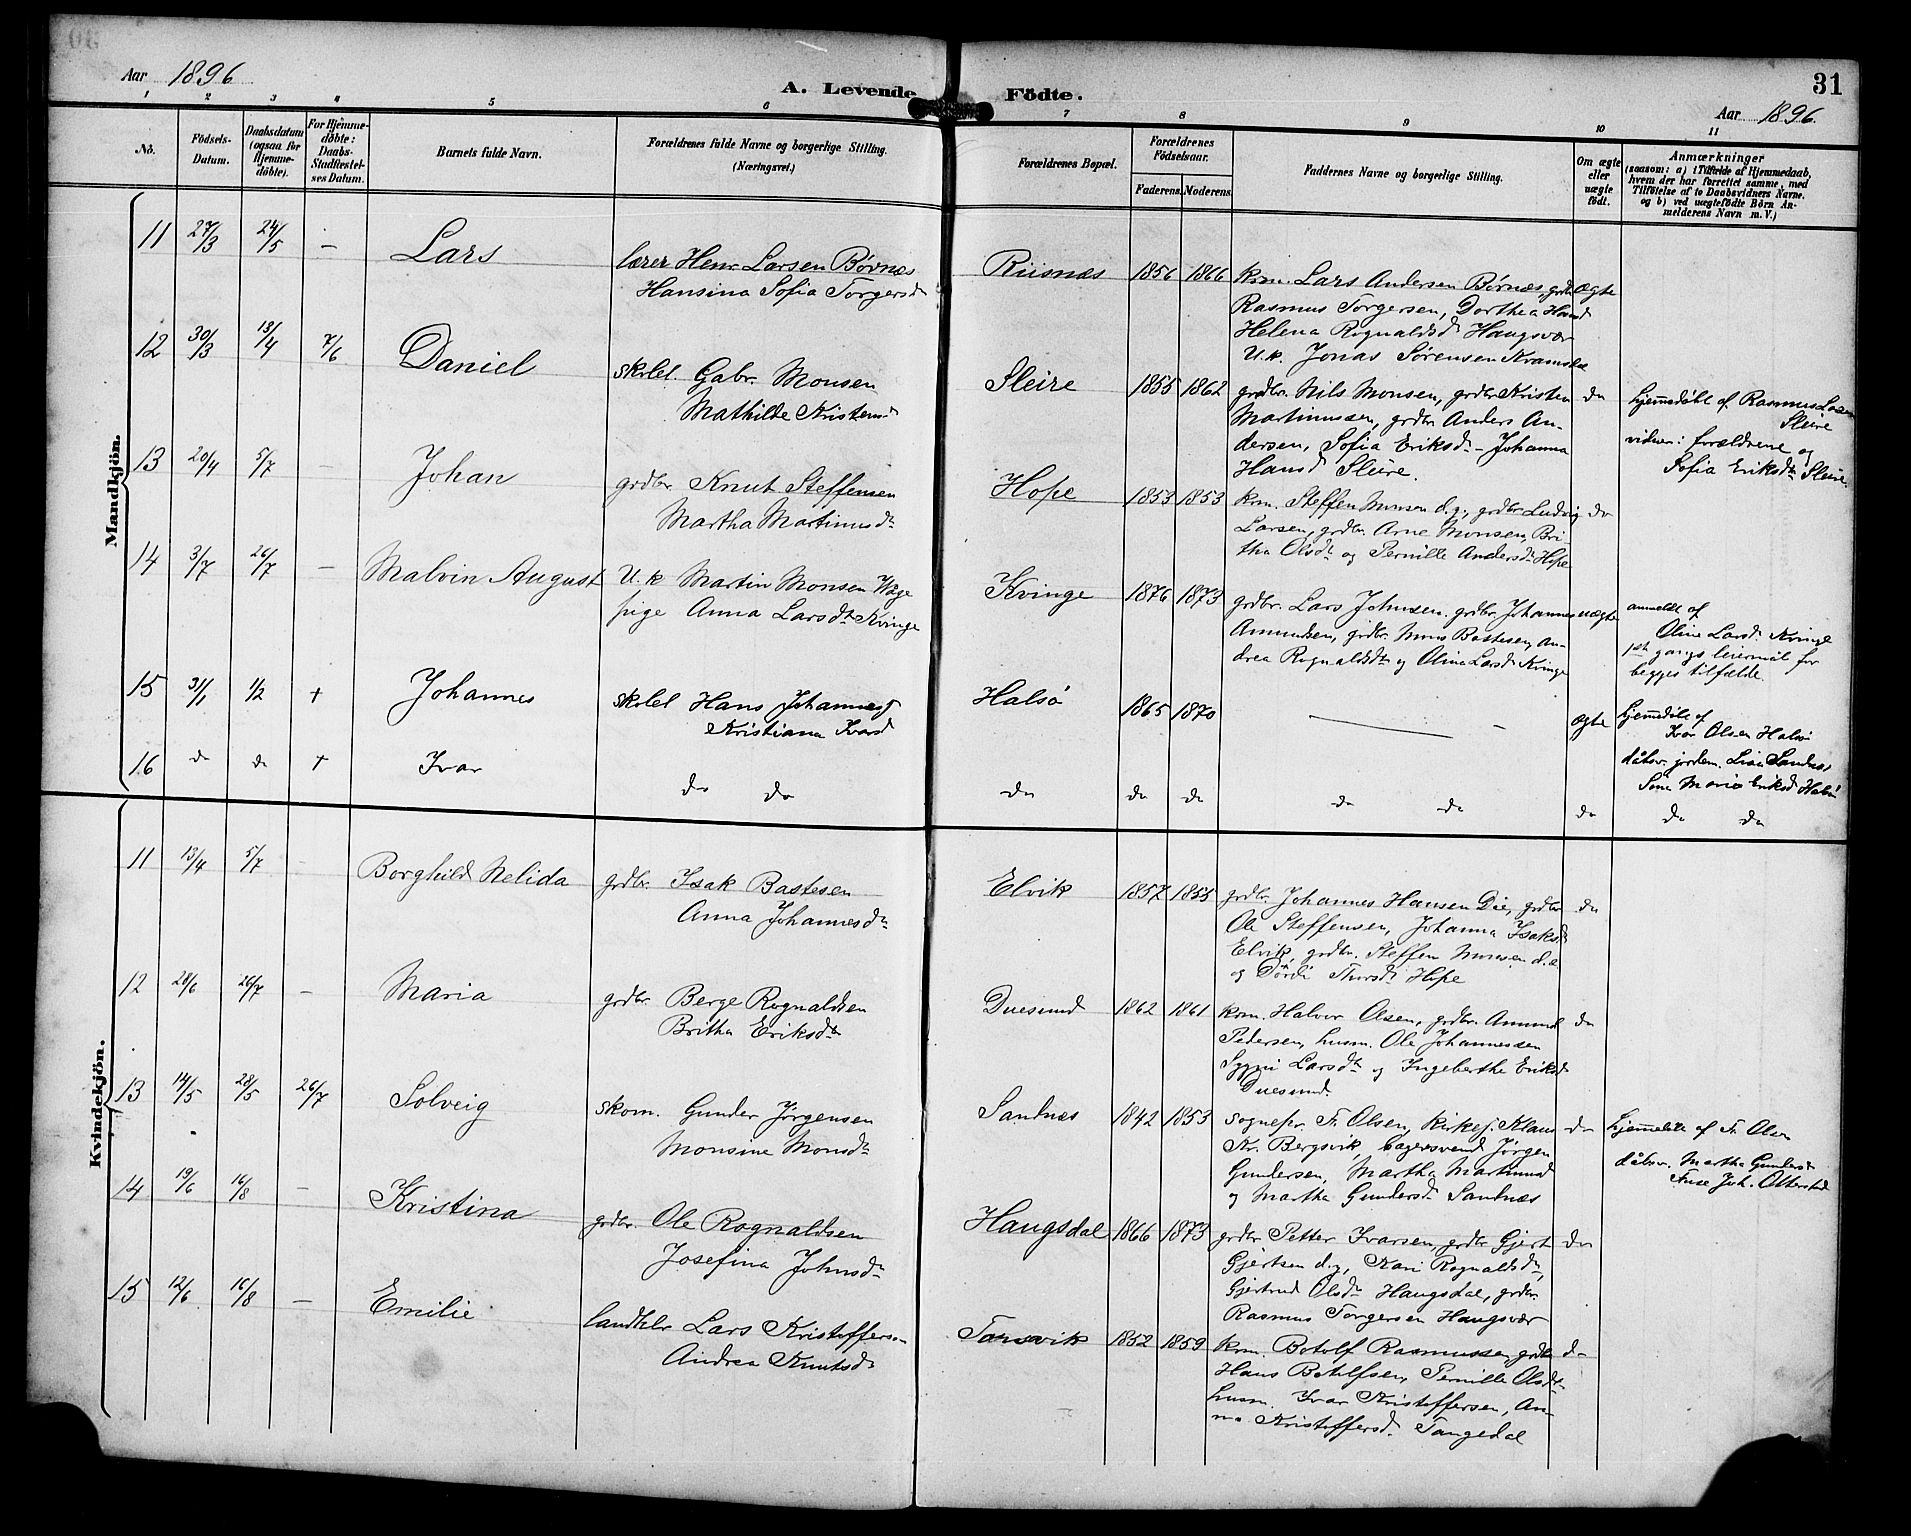 Aar 1896
A. Levende Födte.
31
Aar 1896.
1 2 3 4 5 6 7 8 9 10 11
No.
Födsels-Datum.
Daabsdatum (ogsaa for Hjemme-döbte).
For Hjemme-döbte: Daabs-Stadfæstel-ses Datum.
Barnets fulde Navn.
Forældrenes fulde Navne og borgerlige Stilling.
(Næringsvei.)
Forældrenes Bopæl.
Forældrenes Födselsaar.
Faderens. Moderens.
Faddernes Navne og borgerlige Stilling.
Om ægte eller uægte födt.
Anmærkninger
(saasom: a) i Tilfælde af Hjemmedaab,
hvem der har forrettet samme, med
Tilföielse af to Daabsvidners Navne.
og b) ved uægtefödte Börn An-
melderens Navn m. V.)
Mandkjön.
11 27/3 24/5 – Lars
lærer Henr. Larsen Børnes
Hansina Sofia Torgersd
Riisnæs 1856 1866
krm. Lars Andersen Børnæs, grdbr
Rasmus Torgersen, Dorthea Hansd
Helena Rognaldsd Haugsvær
U.k. Jonas Sørensen
ægte
12 30/3 13/4 7/6 Daniel
skolel. Gabr. Monsen
Mathilde Kristensd
Sleire 1855 1862
grdbr. Nils Monsen, grdbr Kristen
Martinussen, grdbr Anders An-
dersen, Sofia Eriksdt – Johanna
Hansd Sleire.
do
hjemmedøbt af Rasmus
Sleire
vidner: forældrene og
Sofia Eriksdt Sleire.
13 20/4 5/7 – Johan
grdbr. Knut Steffensen
Martha Martinusdt
Hope 1853 1853
krm. Steffen Monsen d.y., grdbr Ludvig
Larsen, grdbr. Arne Monsen, Bri-
tha Olsdt og Pernille Andersdt Hope
do
14 3/7 26/7 – Malvin August
U.k Martin Monsen
pige Anna Larsdt Kvinge
Kvinge 1876 1873
grdbr. Lars Johnsen. grdbr. Johannes
Amundsen, grdbr. Mons Bastesen, An-
drea Rognaldsdt og Olina Larsd Kvinge
uægte
anmeldt af
Oline Larsdt Kvinge
1ste gangs leiermål for
begges tilfælde.
15 31/1 1/2 + Johannes
skolel Hans Johannes
Kristiana Ivarsd
Halsø 1865 1870
ægte
hjemmedøbt af
Ivar Olsen Halsø
dåbsv. jordem. Lisa Sandnæs
Marie Eriksd Halsø
16 do do + Ivar
do do
do do do do do do
do do
Kvindekjön.
11 13/4 5/7 – Borghild Nelida
grdbr. Isak Bastesen
Anna Johannesdt
Elvik 1857 1855
grdbr. Johannes Hansen Die, grdbr
Ole Steffensen, Johanna Isaksd
Elvik, grdbr. Steffen Monsen d.æ.
og Dordi Thorsdt Hope
do
12 28/6 26/7 – Maria
grdbr. Berge Rognaldsen
Britha Eriksdt
Duesund 1862 1861
krm. Halvor Olsen, grdbr. Amund
Pedersen, husm. Ole Johannessen
Larsdt og Ingeborthe Eriksd
Duesund.
do
13 14/5 28/5 26/7 Solveig
skom. Gunder Jørgensen
Monsine Monsdt
Sandnæs 1842 1853
sognepr Fr. Olsen, kirkesj. Klaus
Kr. Bergsvik, bagersvend Jørgen
Gundersen, Martha Martinusd
og Martha Gundersdt Sandnæs
do
hjemmedøbt af Fr. Olsen
dåbsv. Martha Gundersdt
Joh.
14 19/6 16/8 – Kristina
grdbr. Ole Rognaldsen
Josefina Johnsdt
Haugsdal 1866 1873
grdbr Petter Ivarsen, grdbr Gjert
Gjertsen d.y, Kari Rognaldsdt,
Gjertrud Olsdt Haugsdal, grdbr.
Rasmus Torgersen Haugsvær
do
15 12/6 16/8 – Emilie
landhlr Lars Kristoffers.
Andrea Knutsdt
Tonsvik 1852 1859
krm. Botolf Rasmussen, grdbr
Hans Botolfsen, Pernille Olsdt
husm. Ivar Kristoffersen, An-
na Kristoffersdt. Tangedal
do